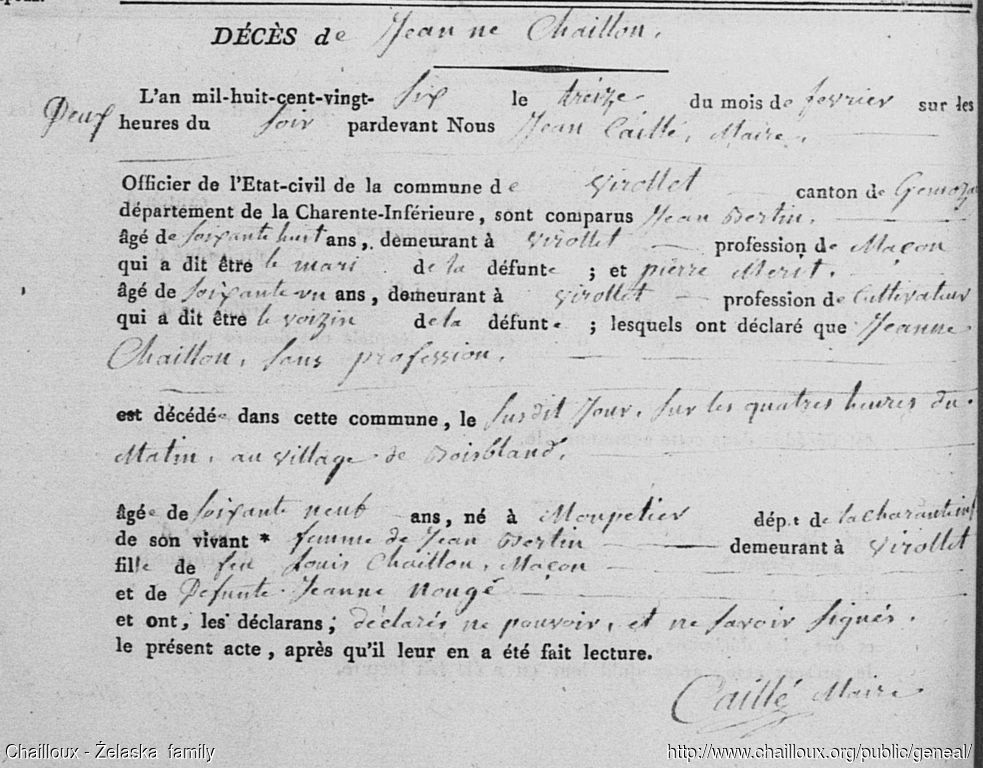 DÉCÈS de Jeanne Chaillon.
L'an mil-huit-cent-vingt- six le treize du mois de fevrier sur les
Deux heures du soir pardevant Nous Jean Caillé, Maire.
Officier de l'Etat-civil de la commune de Virollet canton de Gemoza
département de la Charente-Inférieure, sont comparus Jean Bertin.
âgé de soixante huit ans, demeurant à Virollet profession de Maçon
qui a dit être le mari de la défunte ; et pierre Merit.
âgé de soixante un ans, demeurant à Virollet profession de Cultivateur
qui a dit être le voizin de la défunte ; lesquels ont déclaré que Jeanne
Chaillon, sans profession.
est décédée dans cette commune, le susdit Jour, sur les quatres heures du
Matin, au village de Boisbland.
âgée de soixante neuf ans, né à Monpetier dép.t de la Charante inf
de son vivant * femme de Jean Bertin demeurant à Virollet
fille de feu Louis Chaillon, Maçon
et de Defunte Jeanne Nougé
et ont, les déclarans; déclarés ne pouvoir, et ne savoir signés.
le présent acte, après qu'il leur en a été fait lecture.
Caillé Maire
Chailloux - Żelaska family
http://www.chailloux.org/public/geneal/